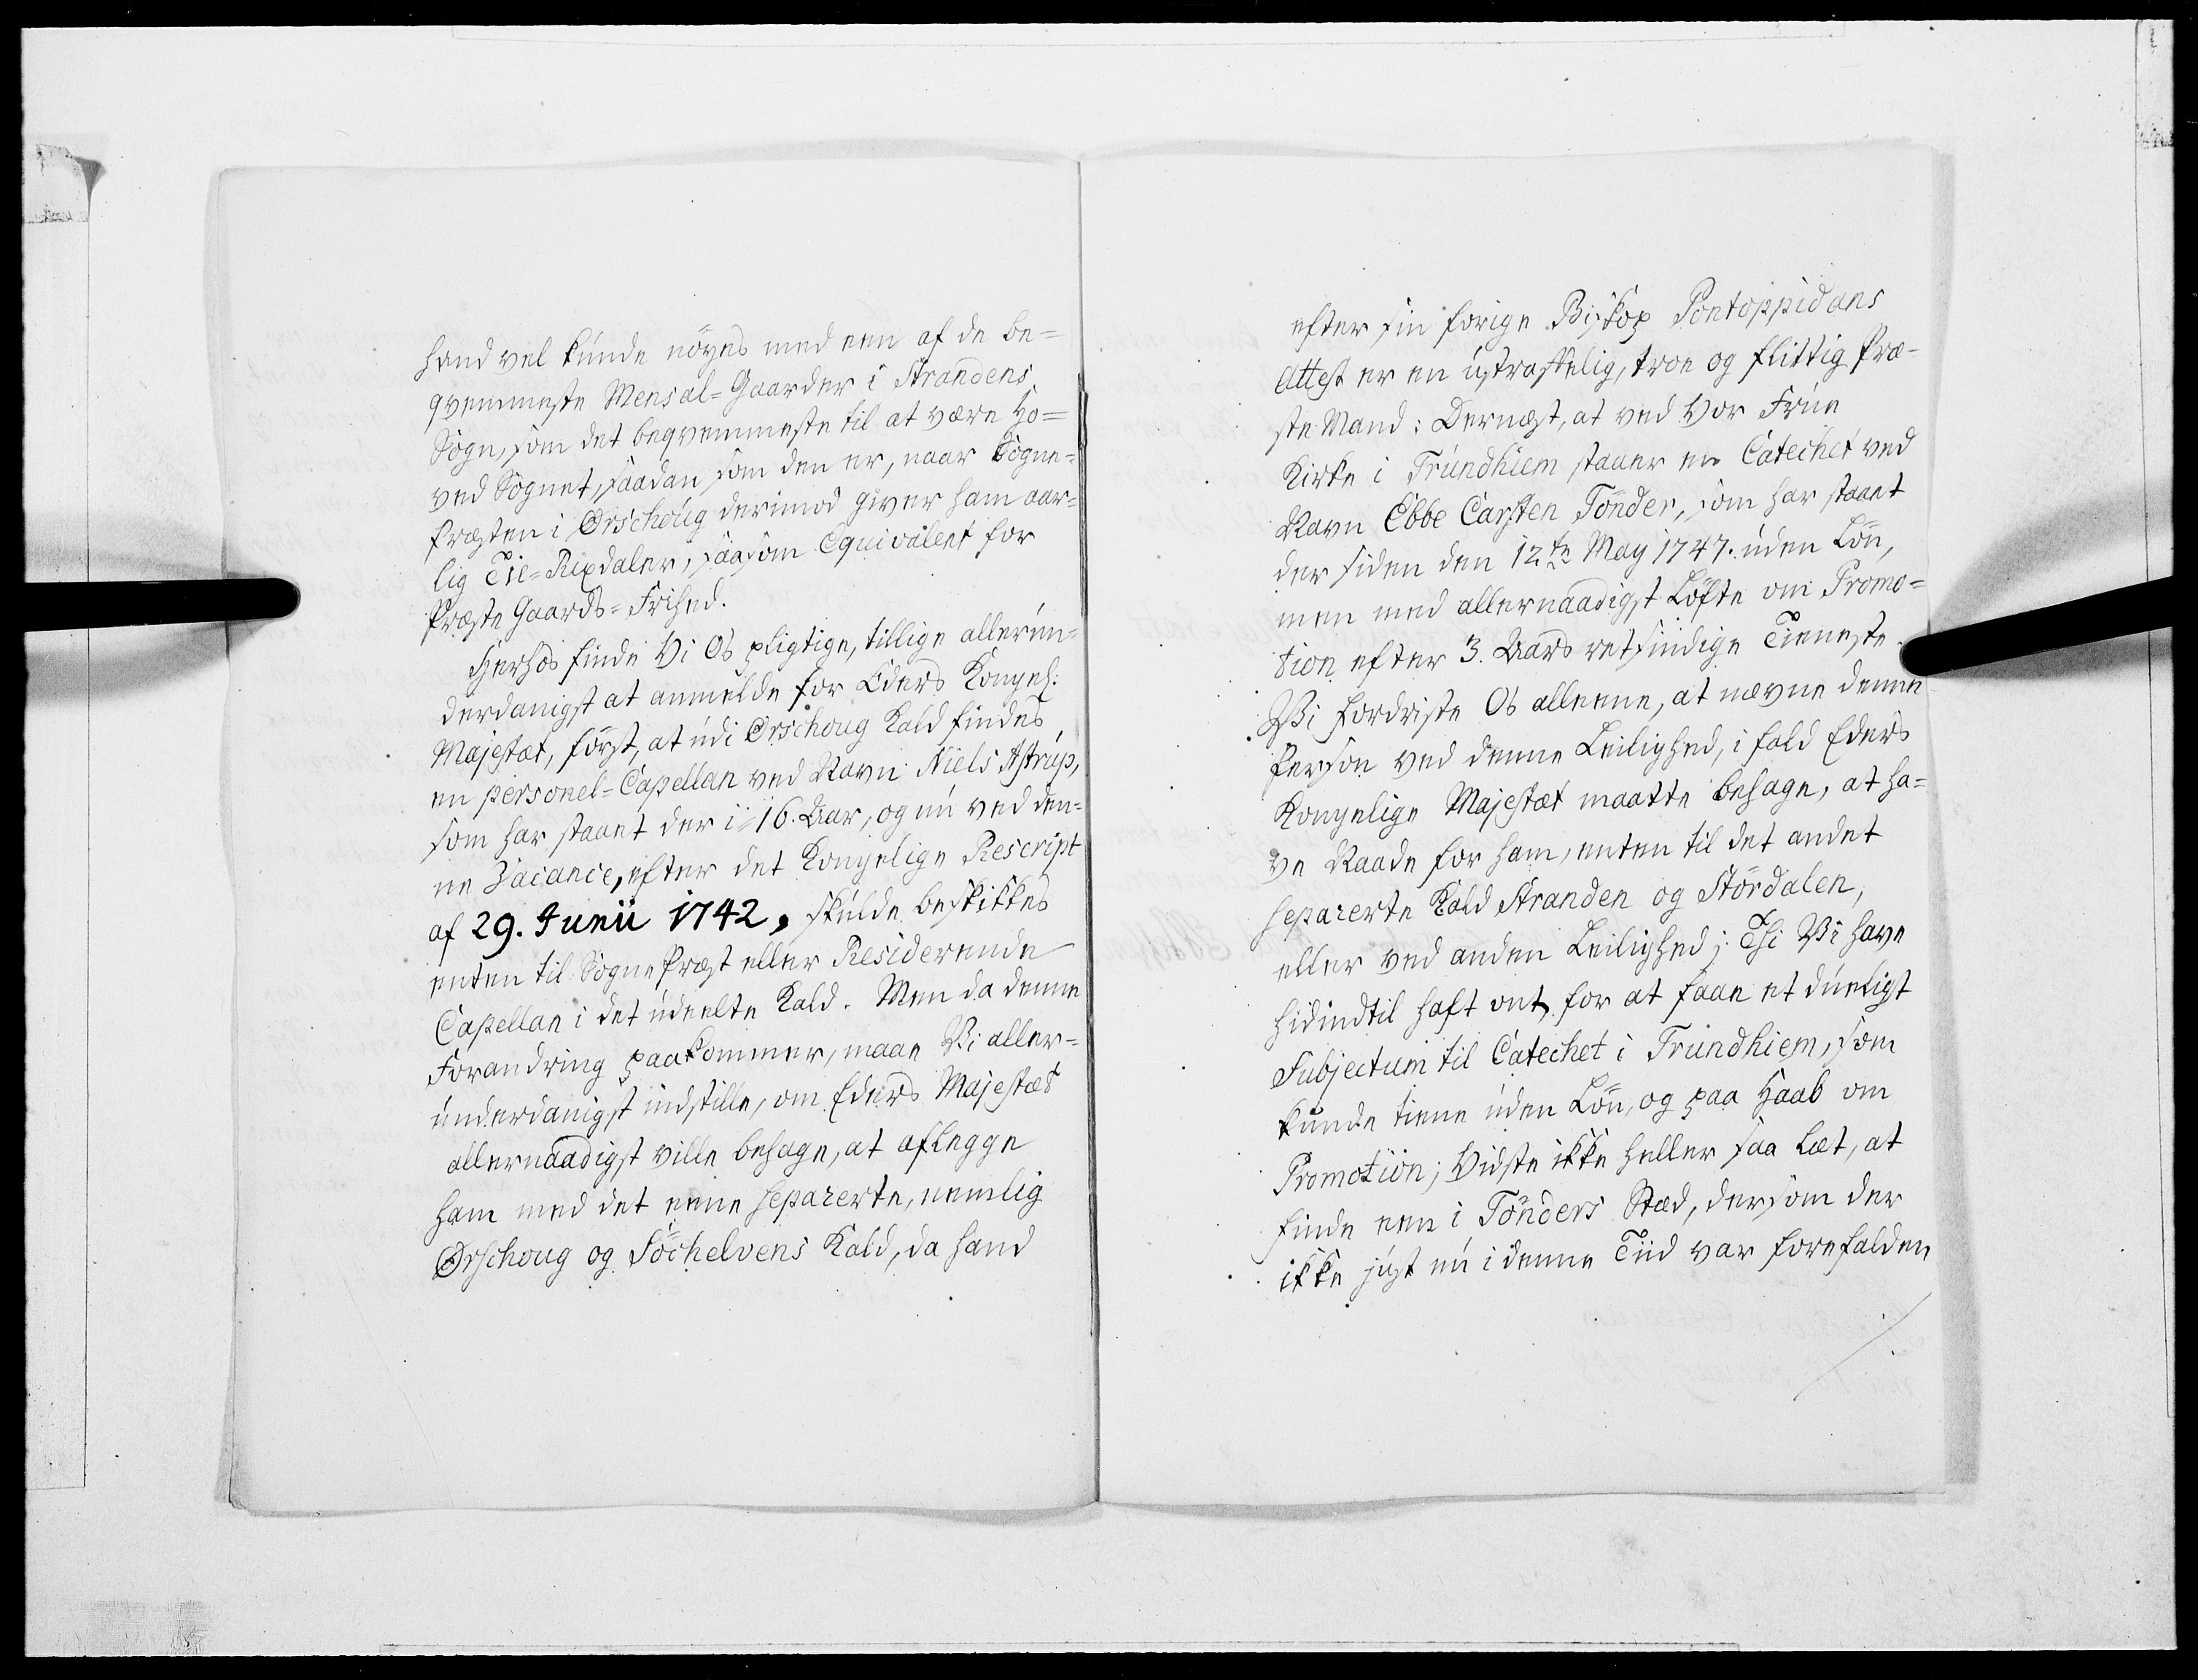 hand vel kunde nöyes med een af de be=
qvemmeste Mensal=Gaarder i Strandens
Sogn, som det beqvemmeste til at være Ho=
ved Sognet, saadan som den er, naar Sogne-
Præsten i Orschoug derimod giver ham aar-
lig Tie=Rixdaler, saasom Equivalent for
Præste Gaards=Frihed.
Herhos finde Vi Os pligtige, tillige allerun-
derdanigst at anmelde for Eders Kongel:
Majestæt, först, at udi Orschoug Kald findes
en personel=Capellan ved Navn Niels Astrup,
som har staaet der i 16. Aar, og nu ved den-
ne Vacance, efter det Kongelige Rescript
af 29. Junii 1742, skulde beskikkes
enten til SognePræst eller Residerende
Capellan i det udeelte Kald. Men da denne
Forandring paakommer, maae Vi aller-
underdanigst indstille, om Eders Majestæt
allernaadigst ville behage, at aflegge
ham med det eene separerte, nemlig
Orschoug og Söchelvens Kald, da hand
efter sin forige Biskop Pontoppidans
Attest er en ustraffelig, troe og flittig Præ-
ste Mand: Dernæst, at ved Vor Frue
Kirke i Trundhiem staaer en Catechet ved
Navn Ebbe Carsten Tönder, som har staaet
der siden den 12te May 1747. uden Lön,
men med allernaadigst Löfte om Promo=
tion efter 3. Aars retsindige Tieneste.
Vi fordriste Os alleene, at nævne denne
Person ved denne Leilighed, i fald Eders
Kongelige Majestæt maatte behage, at ha=
ve Naade for ham, enten til det andet
separerte Kald Stranden og Stördalen,
eller ved anden Leilighed; Thi Vi have
hidindtil haft ont for at faae et dueligt
Subjectum til Catechet i Trundhiem, som
kunde tiene uden Lön, og paa Haab om
Promotion; Vidste ikke heller saa læt, at
finde een i Tönders Stæd, dersom der
ikke just nu i denne Tiid var forefalden